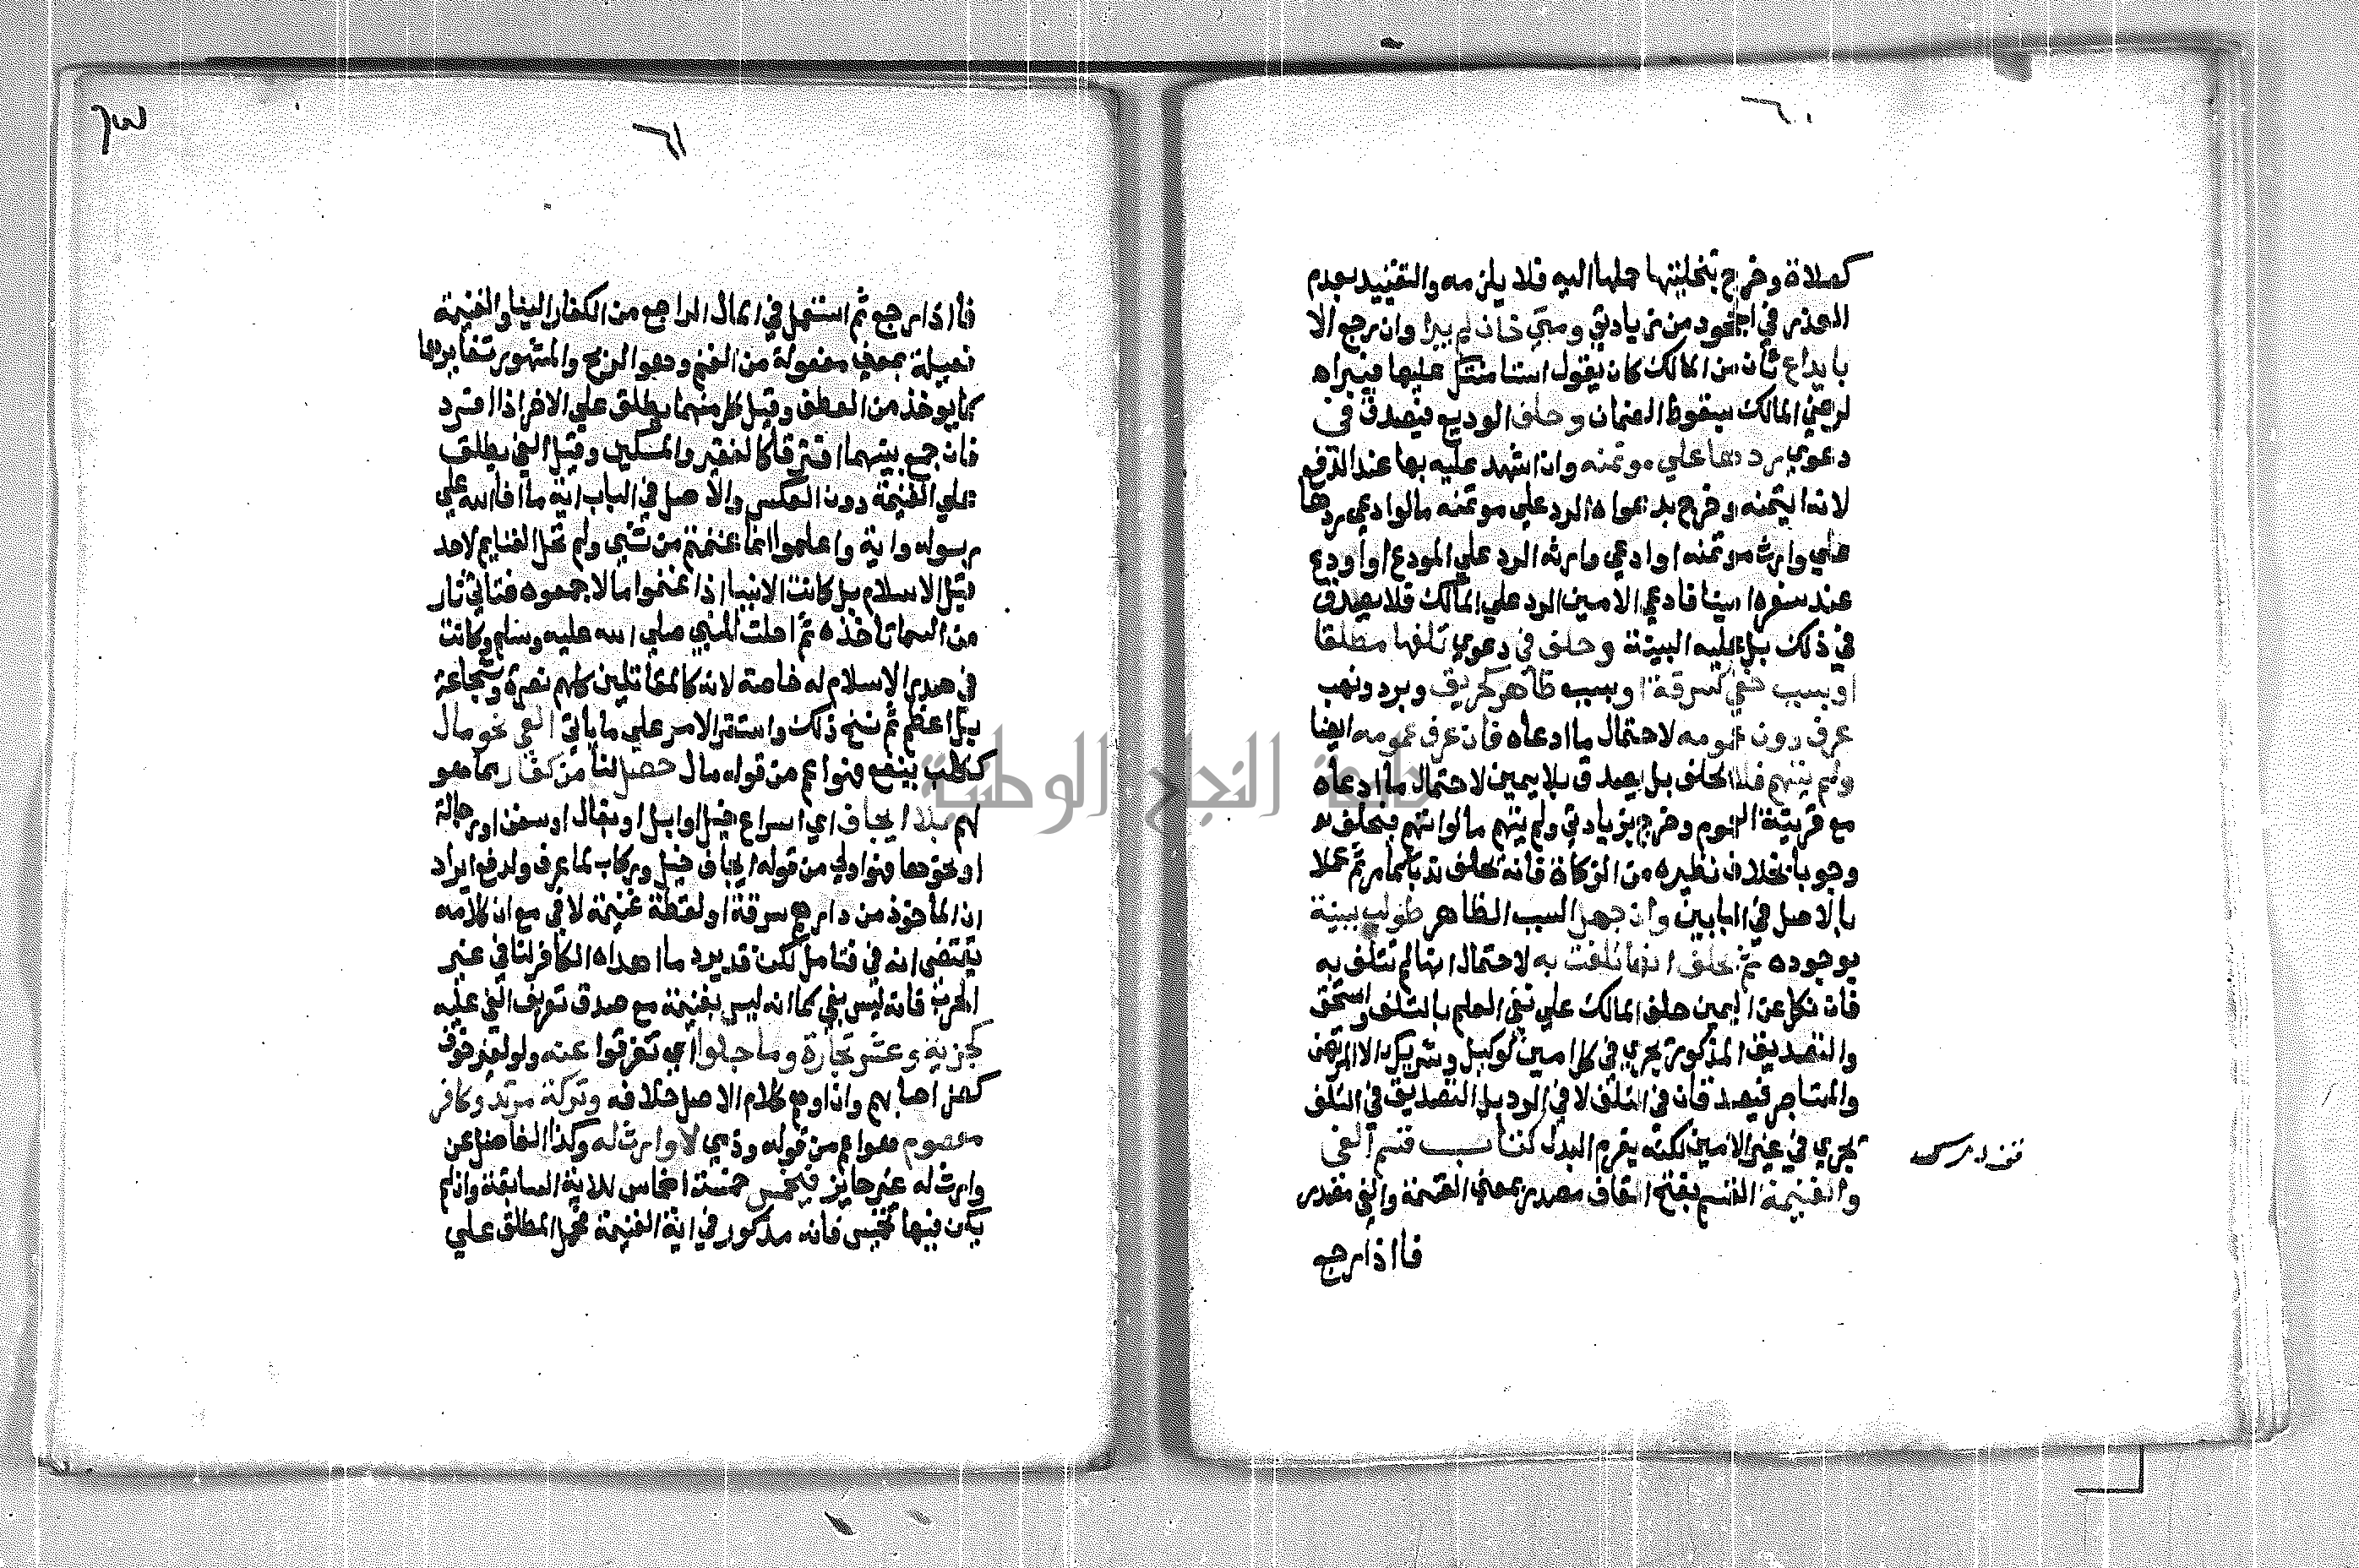 ٦٠
كصلاة وخرج بتخليتها حملها اليه فلا يلزمه والتقييد بعدم
العذر في الجحود من زيادتي ومتي خان لم يبرا وان رجع الا
بايداع ثان من المالك كان يقول استامنتك عليها فيبراه
لرضي المالك بسقوط الضمان وحلف الوديع فيصدق في
دعوي ردها علي موتمنه وان اشهد عليه بها عند الدفع
لانه ايتمنه وخرج بدعواه الرد علي موتمنه مالو ادعي ردها
علي وارث موتمنه او ادعي وارثه الرد علي المودع او اودع
عند سفره امينا فادعي الامين الرد علي المالك فلا يصدق
في ذلك بل عليه البينة وحلف في دعوي تلفها مطلقا
او بسبب خفي كسرقة او بسبب ظاهر كحريق وبرد ونهب
عرف دون عمومه لاحتمال ما ادعاه فان عرف عمومه ايضا
ولم يتهم فلا يحلف بل يصدق بلا يمين لاحتمال ما ادعاه
مع قرينة العموم وخرج بزيادتي ولم يتهم مالو اتهم فيحلف
وجوبا بخلاف نظيره من الزكاة فانه يحلف ندبا كما مر ثم عملا
بالاصل في البابين وان جهل السبب الظاهر طولب ببينة
بوجوده ثم يحلف انها تلفت به لاحتمال انها لم تتلف به
فان نكل عن اليمين حلف المالك علي نفي العلم بالتلف واستحق
والتصديق المذكور يجري في كل امين كوكيل وشريك الا المرتهن
والمستاجر فيصدقان في التلف لا في الرد بل التصديق في التلف
يجري في غير الامين لكنه يغرم البدل كتاب قسم الفي
والغنيمة القسم بفتح القاف مصدر بمعني القسمة والفي مصدر
فا اذا رجع
٦١
فا اذا رجع ثم استعمل في المال الراجع من الكفار الينا والغنيمة
فعيلة بمعني مفعولة من الغنم وهو الربح والمشهور تغايرهما
كما يوخذ من العطف وقيل كل منهما يطلق علي الاخر اذا افرد
فان جمع بينهما افترقا كالفقير والمسكين وقيل الفي يطلق
علي الغنيمة دون العكس والاصل في الباب اية ما افا الله علي
رسوله واية واعلموا انما غنمتم من شي ولم تحل الغنايم لاحد
قبل الاسلام بل كانت الانبيا اذا غنموا مالا جمعوه فتاتي نار
من السما تاخذه ثم احلت للنبي صلي الله عليه وسلم وكانت
في صدر الاسلام له خاصة لانه كالمقاتلين كلهم نصرة وشجاعة
بل اعظم ثم نسخ ذلك واستقر الامر علي ما ياتي الفي نحو مال
ككلب ينفع فهو اعم من قوله مال حصل لنا من كفار مما هو
لهم بلا ايجاف اي اسراع خيل او ابل او بغال او سفن او رجالة
او نحوها فهو اولي من قوله ايجاف خيل وركاب لما عرف ولدفع ايراد
ان الماخوذ من دارهم سرقة او لقطة غنيمة لا في مع ان كلامه
يقتضي انه في فتامل لكن قد يرد ما اهداه الكافر لنا في غير
الحرب فانه ليس بفي كما انه ليس بغنيمة مع صدق تعريف الفي عليه
كجزية وعشر تجارة وما جلوا اي تفرقوا عنه ولو لغير خوف
كضر اصابهم وان اوهم كلام الاصل خلافه وتركة مرتد وكافر
معصوم هو اعم من قوله وذمي لا وارث له وكذا الفاضل عن
وارث له غير حايز فيخمس خمسة اخماس للاية السابقة وان لم
يكن فيها تخميس فانه مذكور في اية الغنيمة فحمل المطلق علي